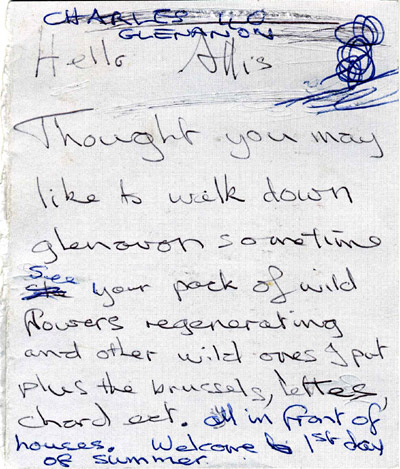 CHARLES 110
GLENANON
Hello Allis
Thought you may
like to walk down
glenavon sometime
See your pack of wild
flowers regenerating
and other wild ones I put
plus the brussels, lettes,
chard ect. all in front of
houses. Welcome to 1st day
of summer